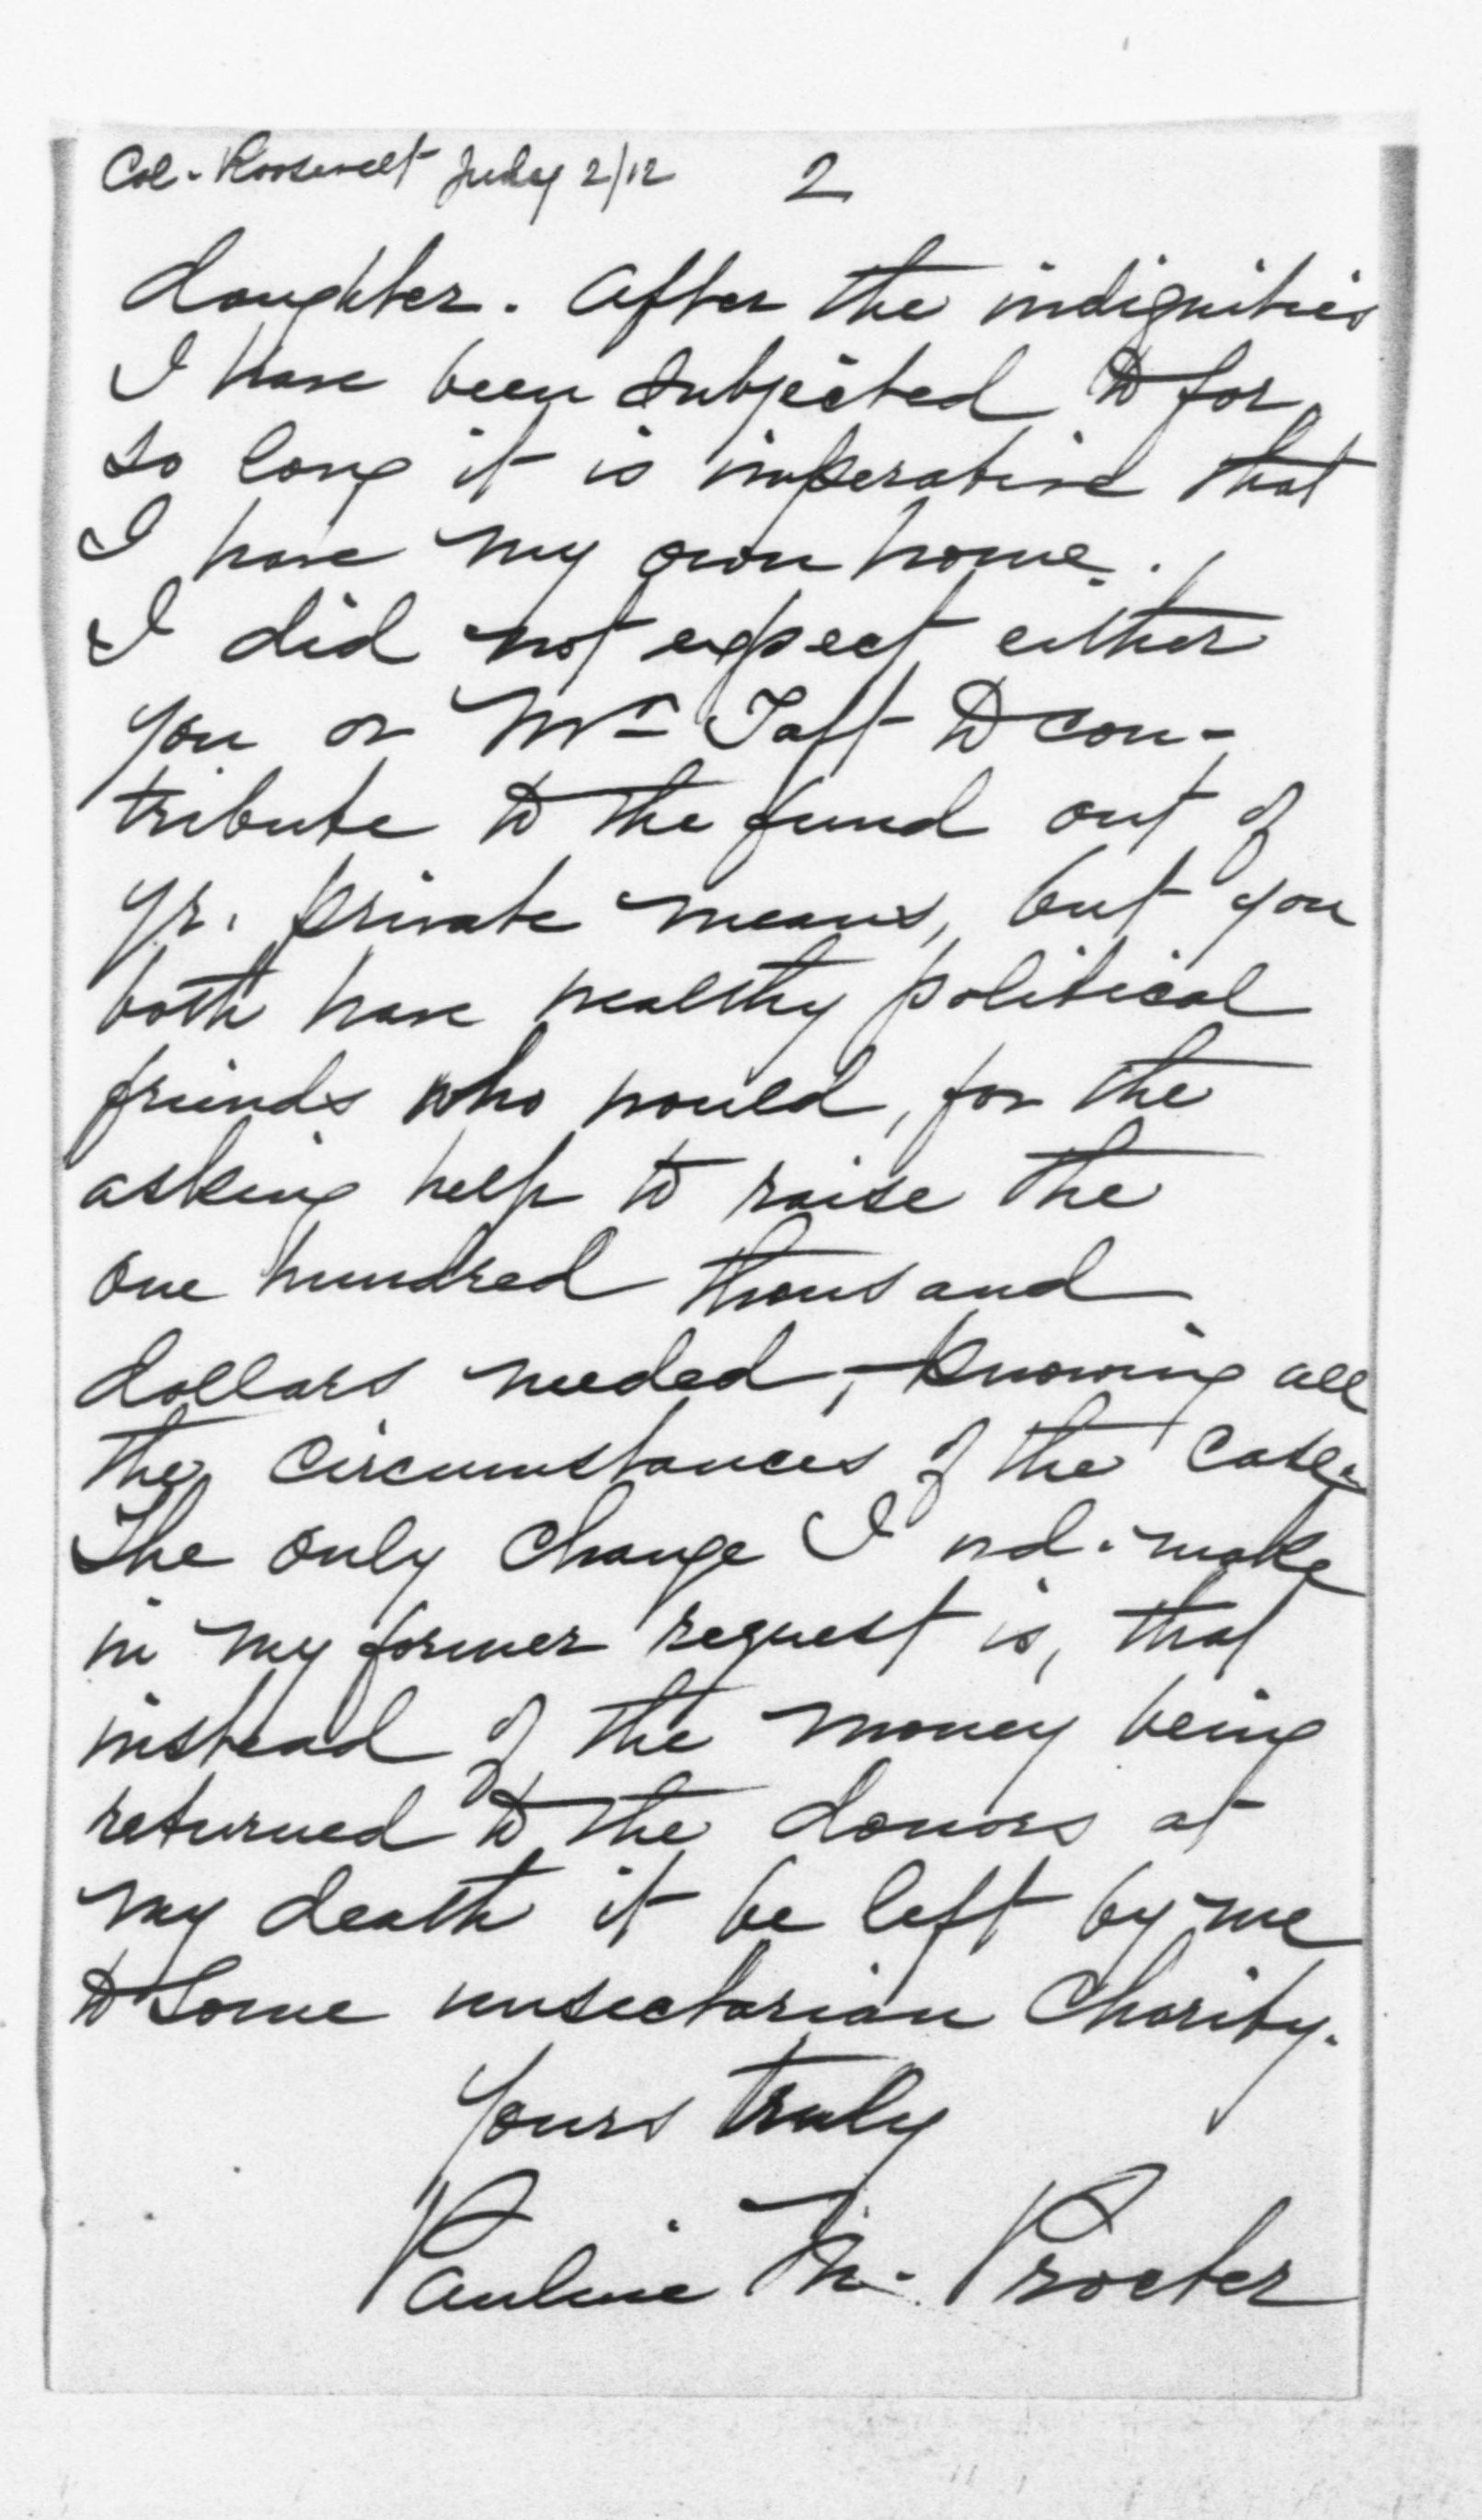 Col. Roosevelt July 2/12 2
daughter. After the indignities
I have been subjected to for
so long it is imperative that
I have my own home.
I did not expect either
you or Mr Taft to con-
tribute to the fund out of
yr. private means, but you
both have wealthy political
friends who would, for the
asking help to raise the
one hundred thousand
dollars needed, - knowing all
the circumstances of the case.
The only change I wd. make
in my former request is, that
instead of the money being
returned to the donors at
my death it be left by me
to some unsectarian Charity.
Yours truly
Pauline M. Procter